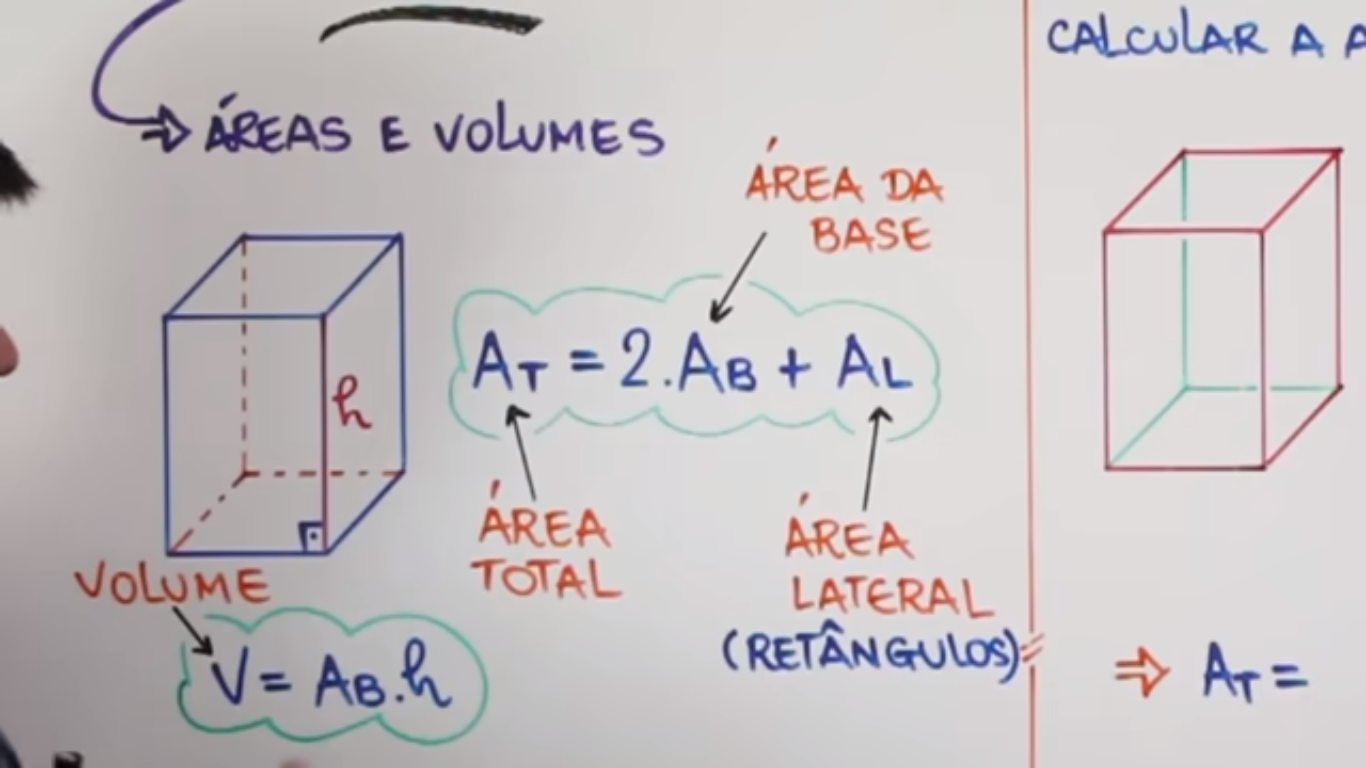 ⇒ ÁREAS E VOLUMES
ÁREA DA
BASE
AT = 2.AB + AL
h
ÁREA
TOTAL
ÁREA
LATERAL
(RETÂNGULOS)
VOLUME
V = AB.h
CALCULAR A
⇒ AT =